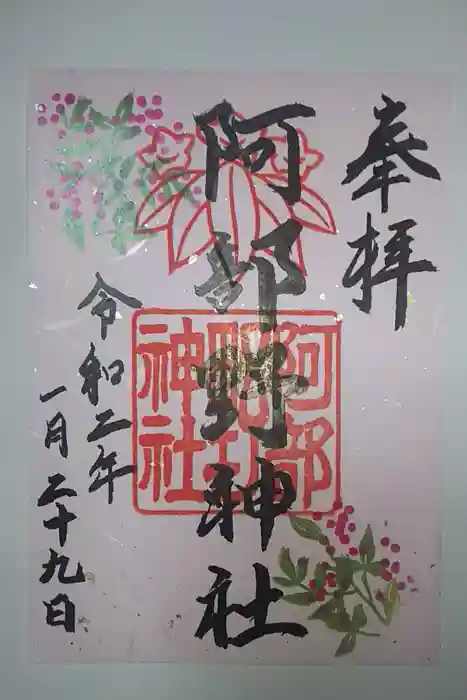 奉拝
阿部野神社
阿部
野
神社
令和二年
一月二十九日